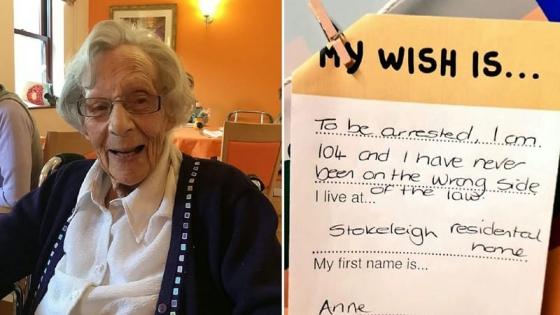 MY WISH IS...
To be arrested, I am
104 and I have never
been on the wrong side
of the law.
I live at...
Stokeleigh residental
home
My first name is...
Anne